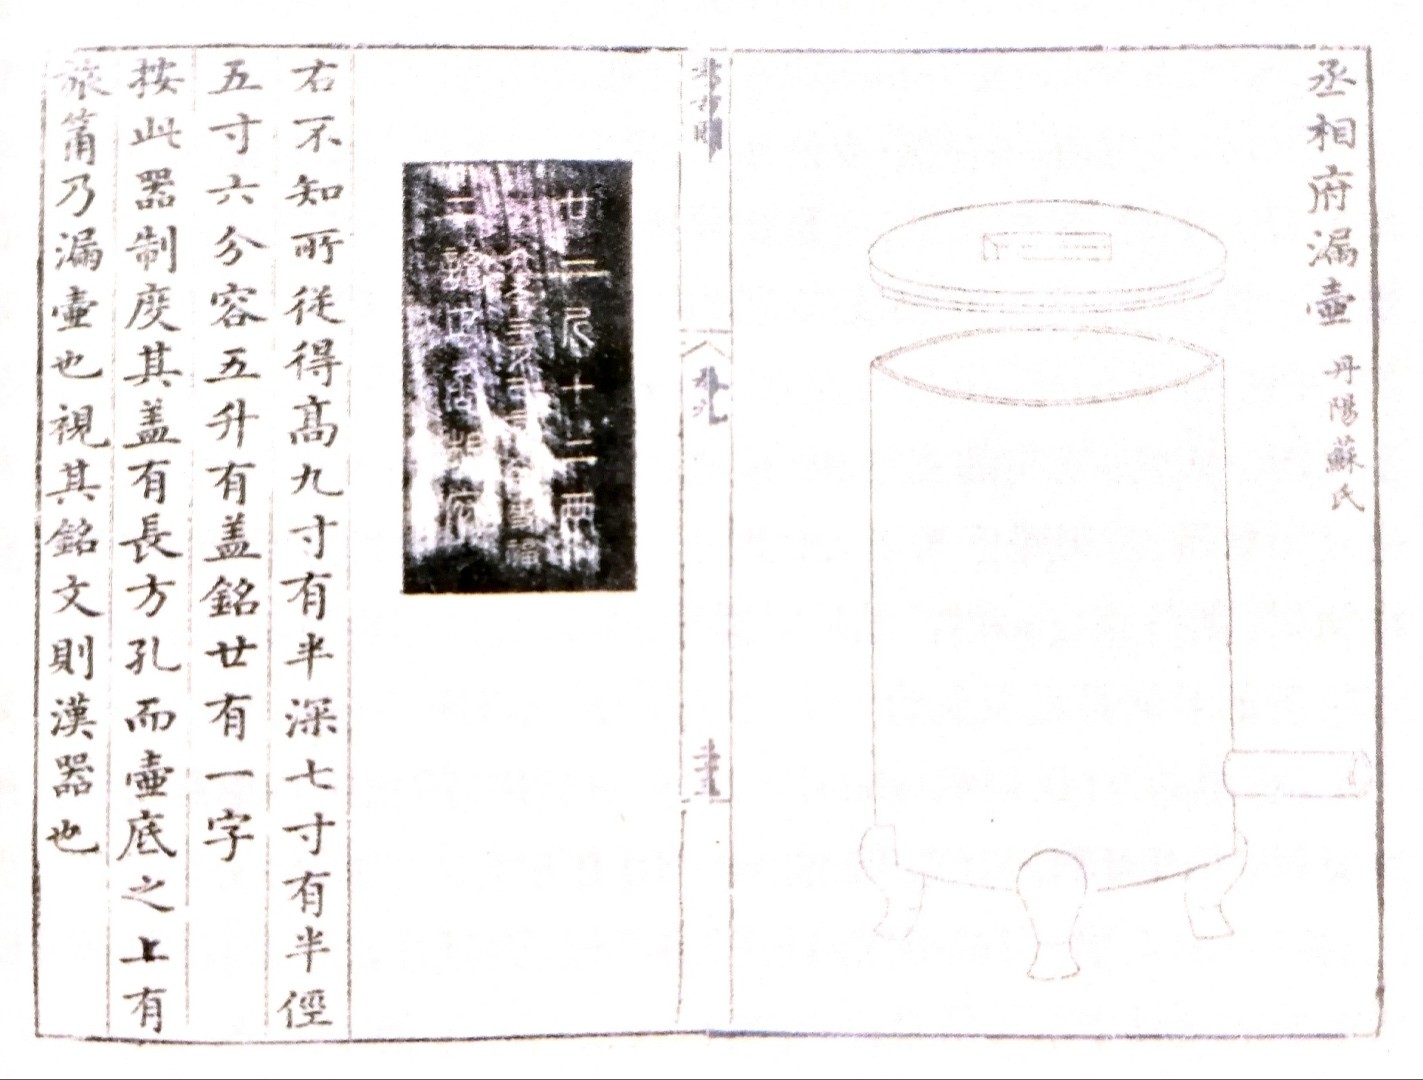 丞相府漏壷 丹陽蘇氏
廿二斤十二兩
右不知所従得髙九寸有半深七寸有半徑
五寸六分容五升有盖銘廿有一字
按此器制度其盖有長方孔而壷底之上有
旅筩乃漏壷也視其銘文則漢器也